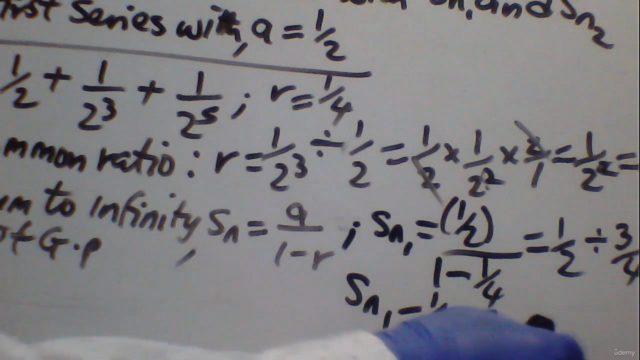 first series with, a = 1/2 and Sn2
1/2 + 1/2^3 + 1/2^5 ; r = 1/4
mmon ratio : r = 1/2^3 ÷ 1/2 = 1/2 × 1/2^2 × 2/1 = 1/2^2 =
um to infinity, Sn = a/(1-r) ; Sn1 = (1/2)/(1 - 1/4) = 1/2 ÷ 3/4
of G.p
Sn1 =
Udemy